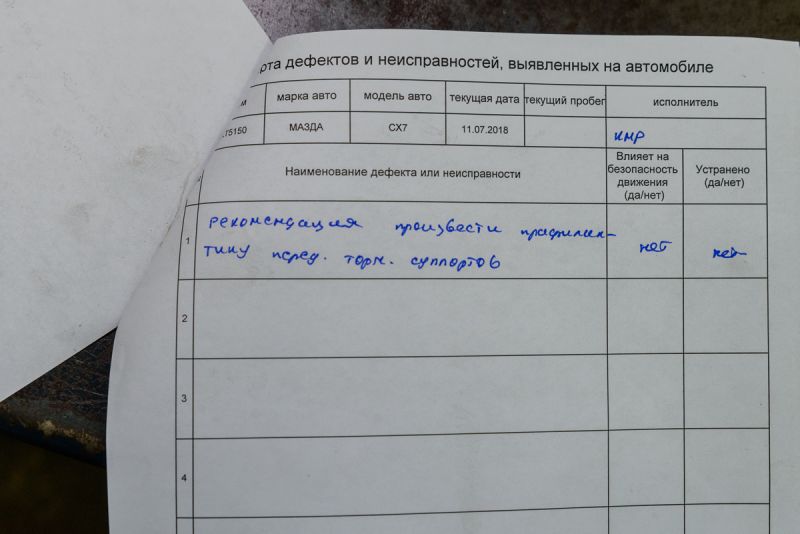 рта дефектов и неисправностей, выявленных на автомобиле
м марка авто модель авто текущая дата текущий пробег исполнитель
T5150 МАЗДА CX7 11.07.2018 КМР
Наименование дефекта или неисправности
Влияет на
безопасность
движения
(да/нет)
Устранено
(да/нет)
1
рекомендация произвести профилак-
тику перед. торм. суппортов
нет
нет
2
3
4